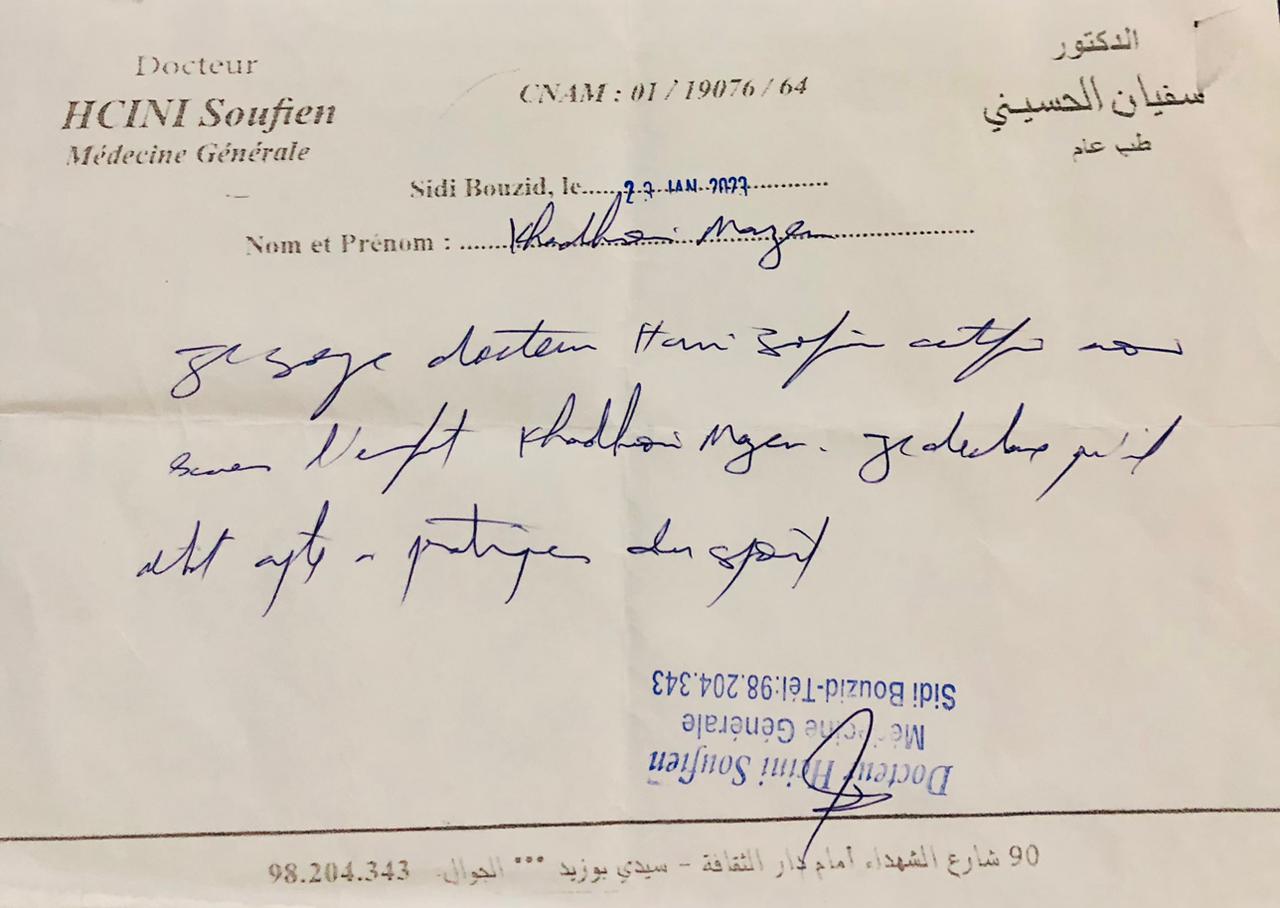 Docteur
HCINI Soufien
Médecine Générale
CNAM : 01 / 19076 / 64
الدكتور
سفيان الحسيني
طب عام
Sidi Bouzid, le...... 27 JAN 2023 ..............
Nom et Prénom : ....... Khadhraoui Mazen ...................
Je soussigné docteur Hcini Sofien certifie avoir
examiné l'enfant Khadhraoui Mazen. Je déclare qu'il
est apte à pratiquer du sport
Docteur Hcini Soufien
Médecine Générale
Sidi Bouzid-Tél:98.204.343
90 شارع الشهداء أمام دار الثقافة - سيدي بوزيد *** الجوال: 98.204.343